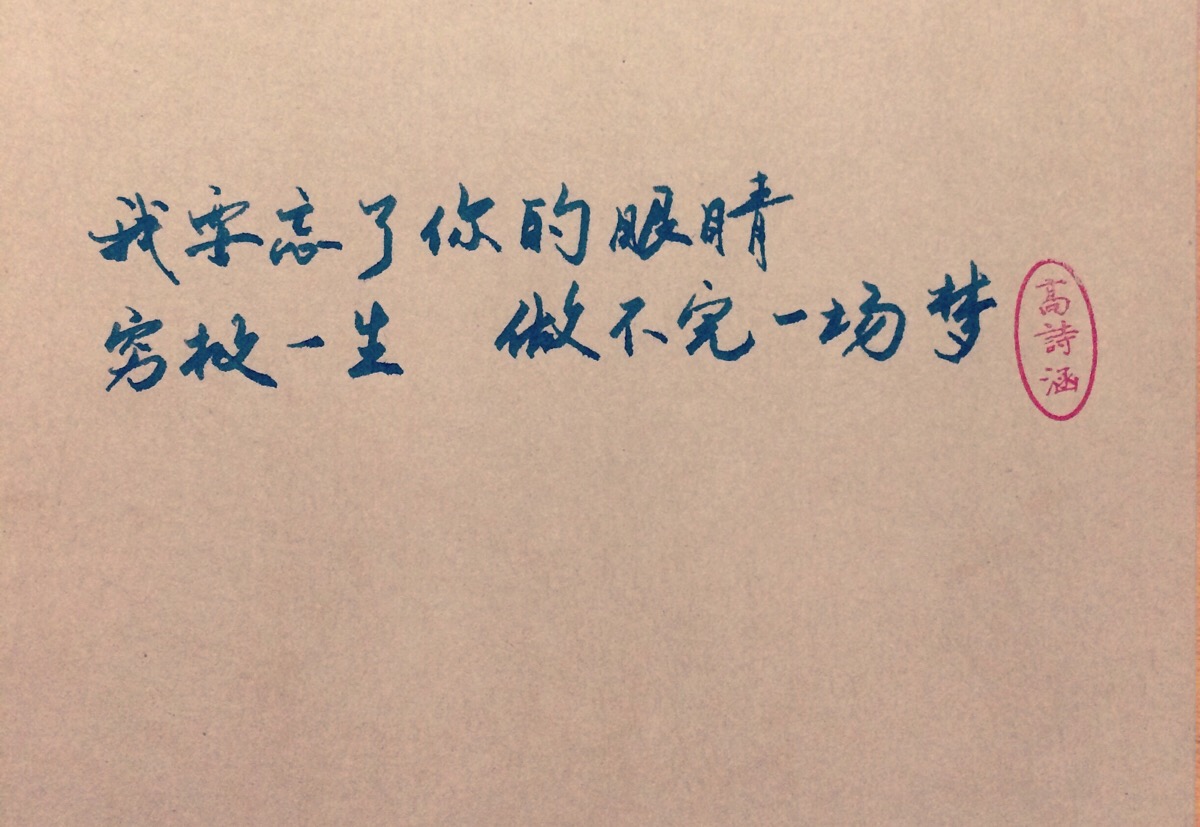 我要忘了你的眼睛
穷极一生 做不完一场梦
高詩涵